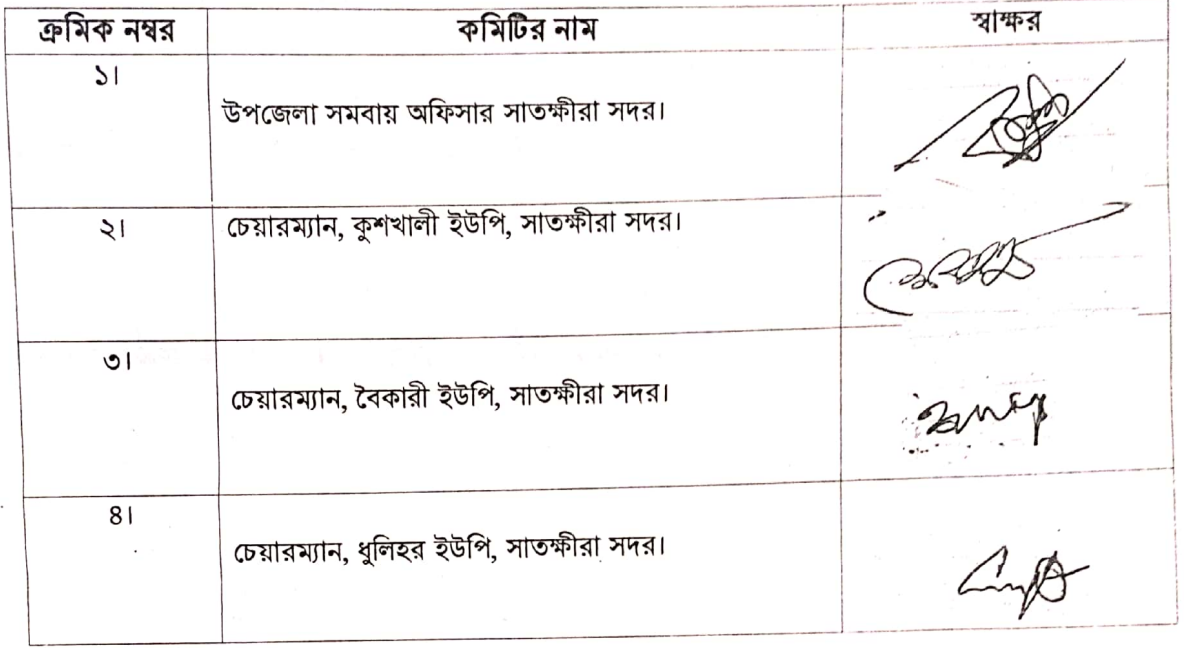 ক্রমিক নম্বর কমিটির নাম স্বাক্ষর
১।
উপজেলা সমবায় অফিসার সাতক্ষীরা সদর।
২। চেয়ারম্যান, কুশখালী ইউপি, সাতক্ষীরা সদর।
৩।
চেয়ারম্যান, বৈকারী ইউপি, সাতক্ষীরা সদর।
৪।
চেয়ারম্যান, ধুলিহর ইউপি, সাতক্ষীরা সদর।